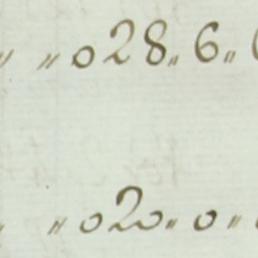 „ „ 028„ 6„
„ „ 020„ 0„